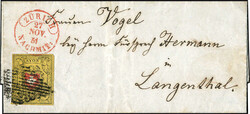 ZÜRICH
27
NOV.
51
NACHMITT.
Frauen Vogel
bey Herrn Fürsprech Hermann
in
Langenthal.